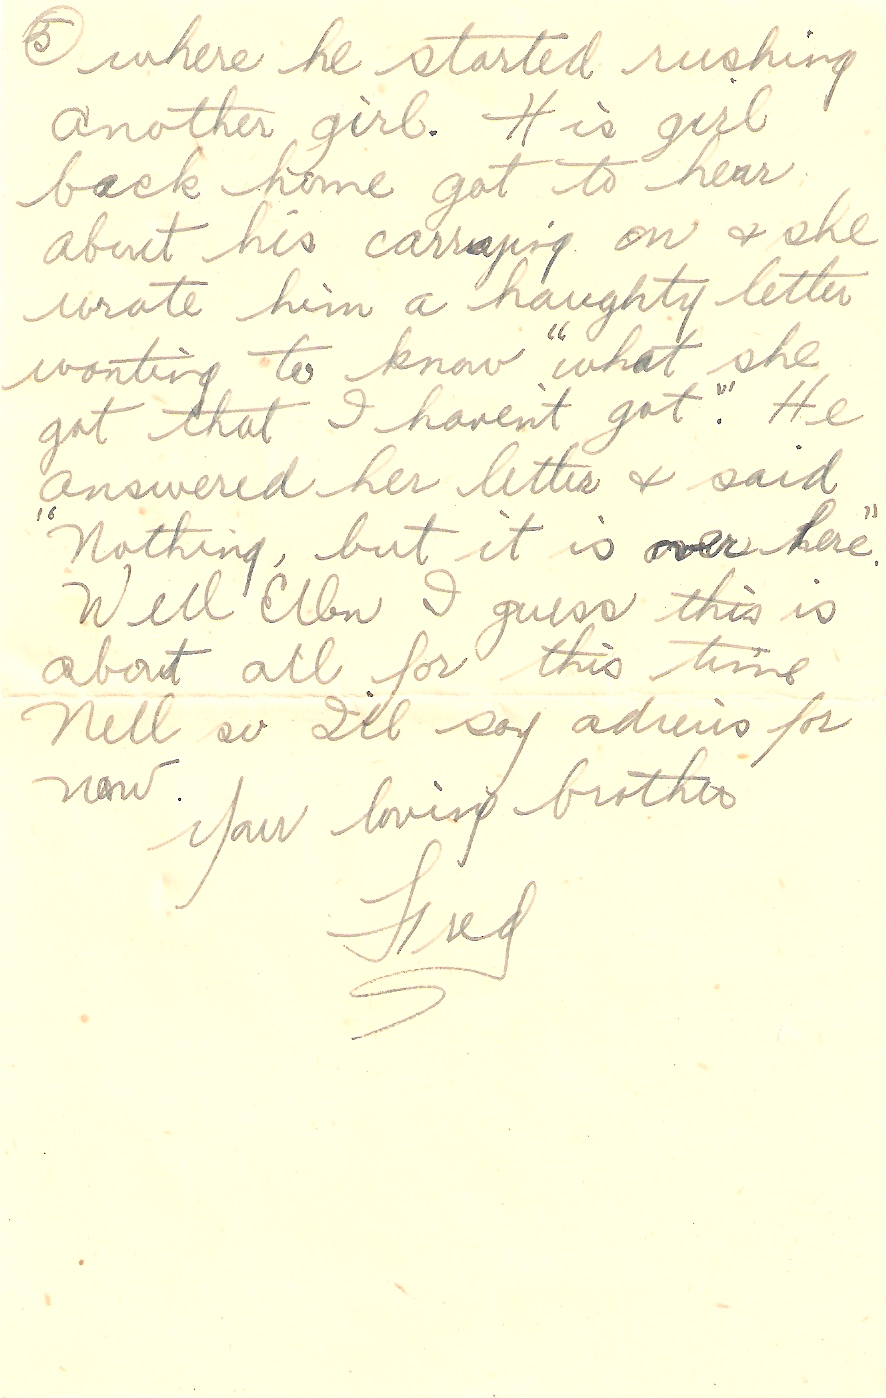 5 where he started rushing
another girl. His girl
back home got to hear
about his carrying on & she
wrote him a haughty letter
wanting to know "what she
got that I haven't got". He
answered her letter & said
"Nothing, but it is over here".
Well I guess this is
about all for this time
Nell so I'll say adieus for
now.
Your loving brother
Fred